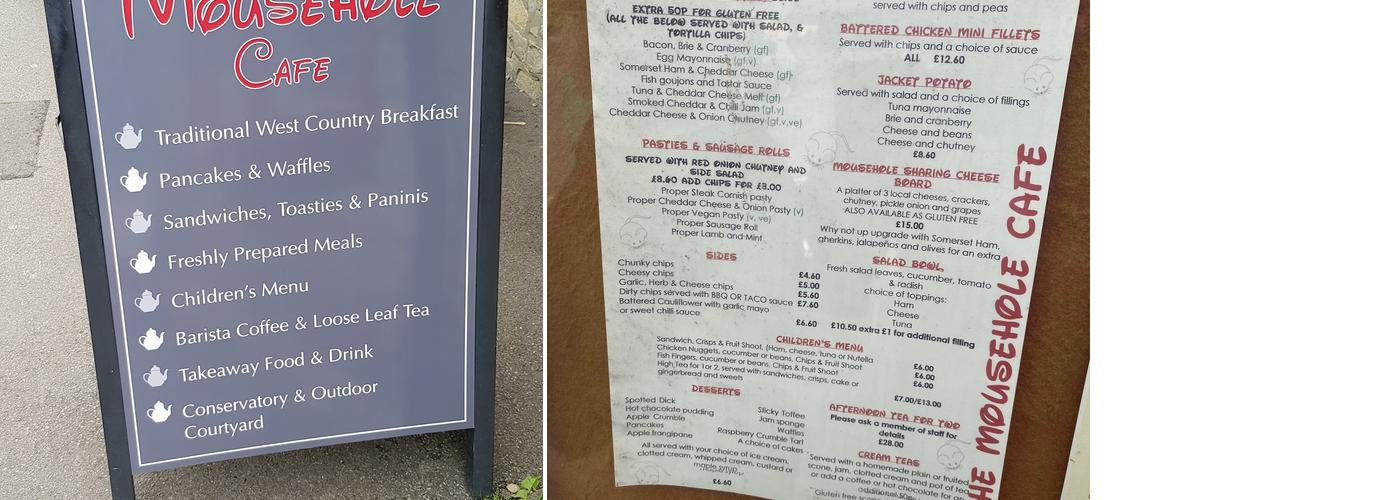 MOUSEHOLE
CAFE
Traditional West Country Breakfast
Pancakes & Waffles
Sandwiches, Toasties & Paninis
Freshly Prepared Meals
Children's Menu
Barista Coffee & Loose Leaf Tea
Takeaway Food & Drink
Conservatory & Outdoor
Courtyard
EXTRA 50P FOR GLUTEN FREE
(ALL THE BELOW SERVED WITH SALAD, &
TORTILLA CHIPS)
Bacon, Brie & Cranberry (gf)
Egg Mayonnaise (gf,v)
Somerset Ham & Cheddar Cheese (gf)
Fish goujons and Tartar Sauce
Tuna & Cheddar Cheese Melt (gf)
Smoked Cheddar & Chilli Jam (gf,v)
Cheddar Cheese & Onion Chutney (gf,v,ve)
PASTIES & SAUSAGE ROLLS
SERVED WITH RED ONION CHUTNEY AND
SIDE SALAD
£8.60 ADD CHIPS FOR £3.00
Proper Steak Cornish pasty
Proper Cheddar Cheese & Onion Pasty (v)
Proper Vegan Pasty (v, ve)
Proper Sausage Roll
Proper Lamb and Mint
SIDES
Chunky chips £4.60
Cheesy chips £5.00
Garlic, Herb & Cheese chips £5.60
Dirty chips served with BBQ OR TACO sauce £7.60
Battered Cauliflower with garlic mayo
or sweet chilli sauce £6.60
served with chips and peas
BATTERED CHICKEN MINI FILLETS
Served with chips and a choice of sauce
ALL £12.60
JACKET POTATO
Served with salad and a choice of fillings
Tuna mayonnaise
Brie and cranberry
Cheese and beans
Cheese and chutney
£8.60
MOUSEHOLE SHARING CHEESE
BOARD
A platter of 3 local cheeses, crackers,
chutney, pickle onion and grapes
ALSO AVAILABLE AS GLUTEN FREE
£15.00
Why not up upgrade with Somerset Ham,
gherkins, jalapeños and olives for an extra
SALAD BOWL,
Fresh salad leaves, cucumber, tomato
& radish
choice of toppings:
Ham
Cheese
Tuna
£10.50 extra £1 for additional filling
CHILDREN'S MENU
Sandwich, Crisps & Fruit Shoot, (Ham, cheese, tuna or Nutella £6.00
Chicken Nuggets, cucumber or beans, Chips & Fruit Shoot £6.00
Fish Fingers, cucumber or beans, Chips & Fruit Shoot £6.00
High Tea for 1 or 2, served with sandwiches, crisps, cake or
gingerbread and sweets £7.00/£13.00
DESSERTS
Spotted Dick
Hot chocolate pudding
Apple Crumble
Pancakes
Apple frangipane
Sticky Toffee
Jam sponge
Waffles
Raspberry Crumble Tart
A choice of cakes
All served with your choice of ice cream,
clotted cream, whipped cream, custard or
maple syrup
£6.60
AFTERNOON TEA FOR TWO
Please ask a member of staff for
details
£28.00
CREAM TEAS
Served with a homemade plain or fruited
scone, jam, clotted cream and pot of tea
or add a coffee or hot chocolate for an
additional 50p
Gluten free
THE MOUSEHOLE CAFE